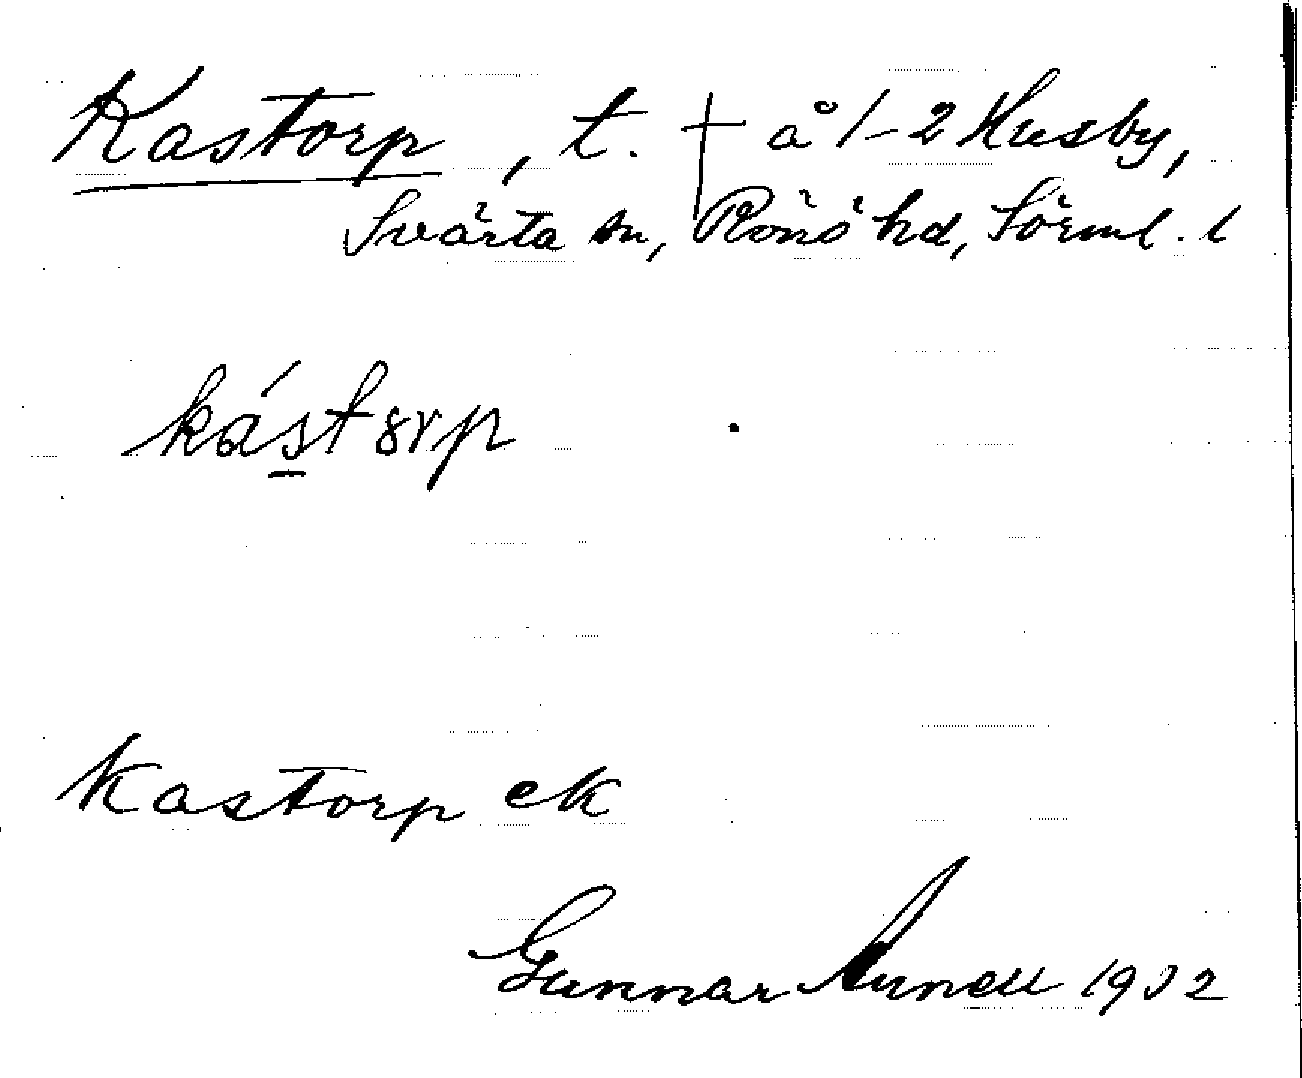 Kastorp, t. † å 1-2 Husby,
Svärta sn, Rönö hd, Sörml. l
kástorp
Kastorp ek
Gunnar Annell 1932